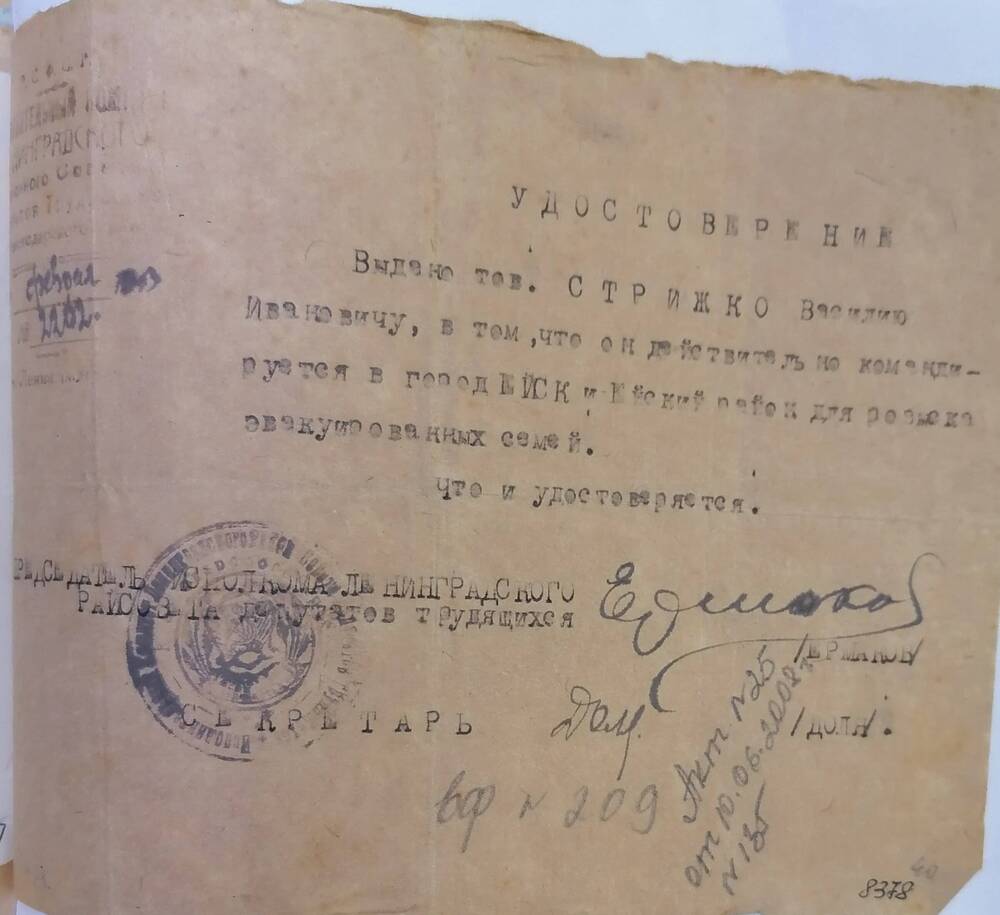 РСФСР
ИНГРАДСКОГО
феврал
22/02.
УДОСТОВЕРЕНИЕ
Выдано тов. СТРИЖКО Василию
Ивановичу, в том, что он действительно команди-
руется в город ЕЙСК и Ейский район для розыска
эвакуированных семей.
Что и удостоверяется.
РЕДСЕДАТЕЛЬ ИСПОЛКОМА ЛЕНИНГРАДСКОГО
РАЙСОВЕТА депутатов трудящихся
Ермаков
/ЕРМАКОВ/
СЕКРЕТАРЬ
/ДОЛЯ/.
Акт. N25
от 10.06.2008г
N 135
вф N 209
8378
40